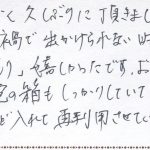 く久しぶりに頂きまし
禍で出かけられない時
り」嬉しかったです。お
の箱もしっかりしていて
が入れて再利用させてい